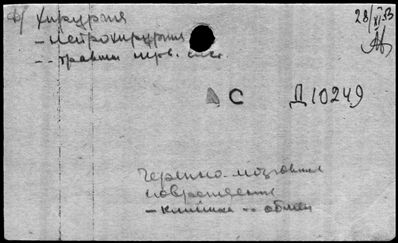 в/ хирургия
28/XI 53
- нейрохирургия
- - травмы нерв. сист.
С Д10249
Черепно-мозговые
повреждения
- клиника -- обмен